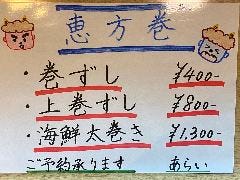 恵方巻
・巻ずし ¥400-
・上巻ずし ¥800-
・海鮮太巻き ¥1,300-
ご予約承ります あらい